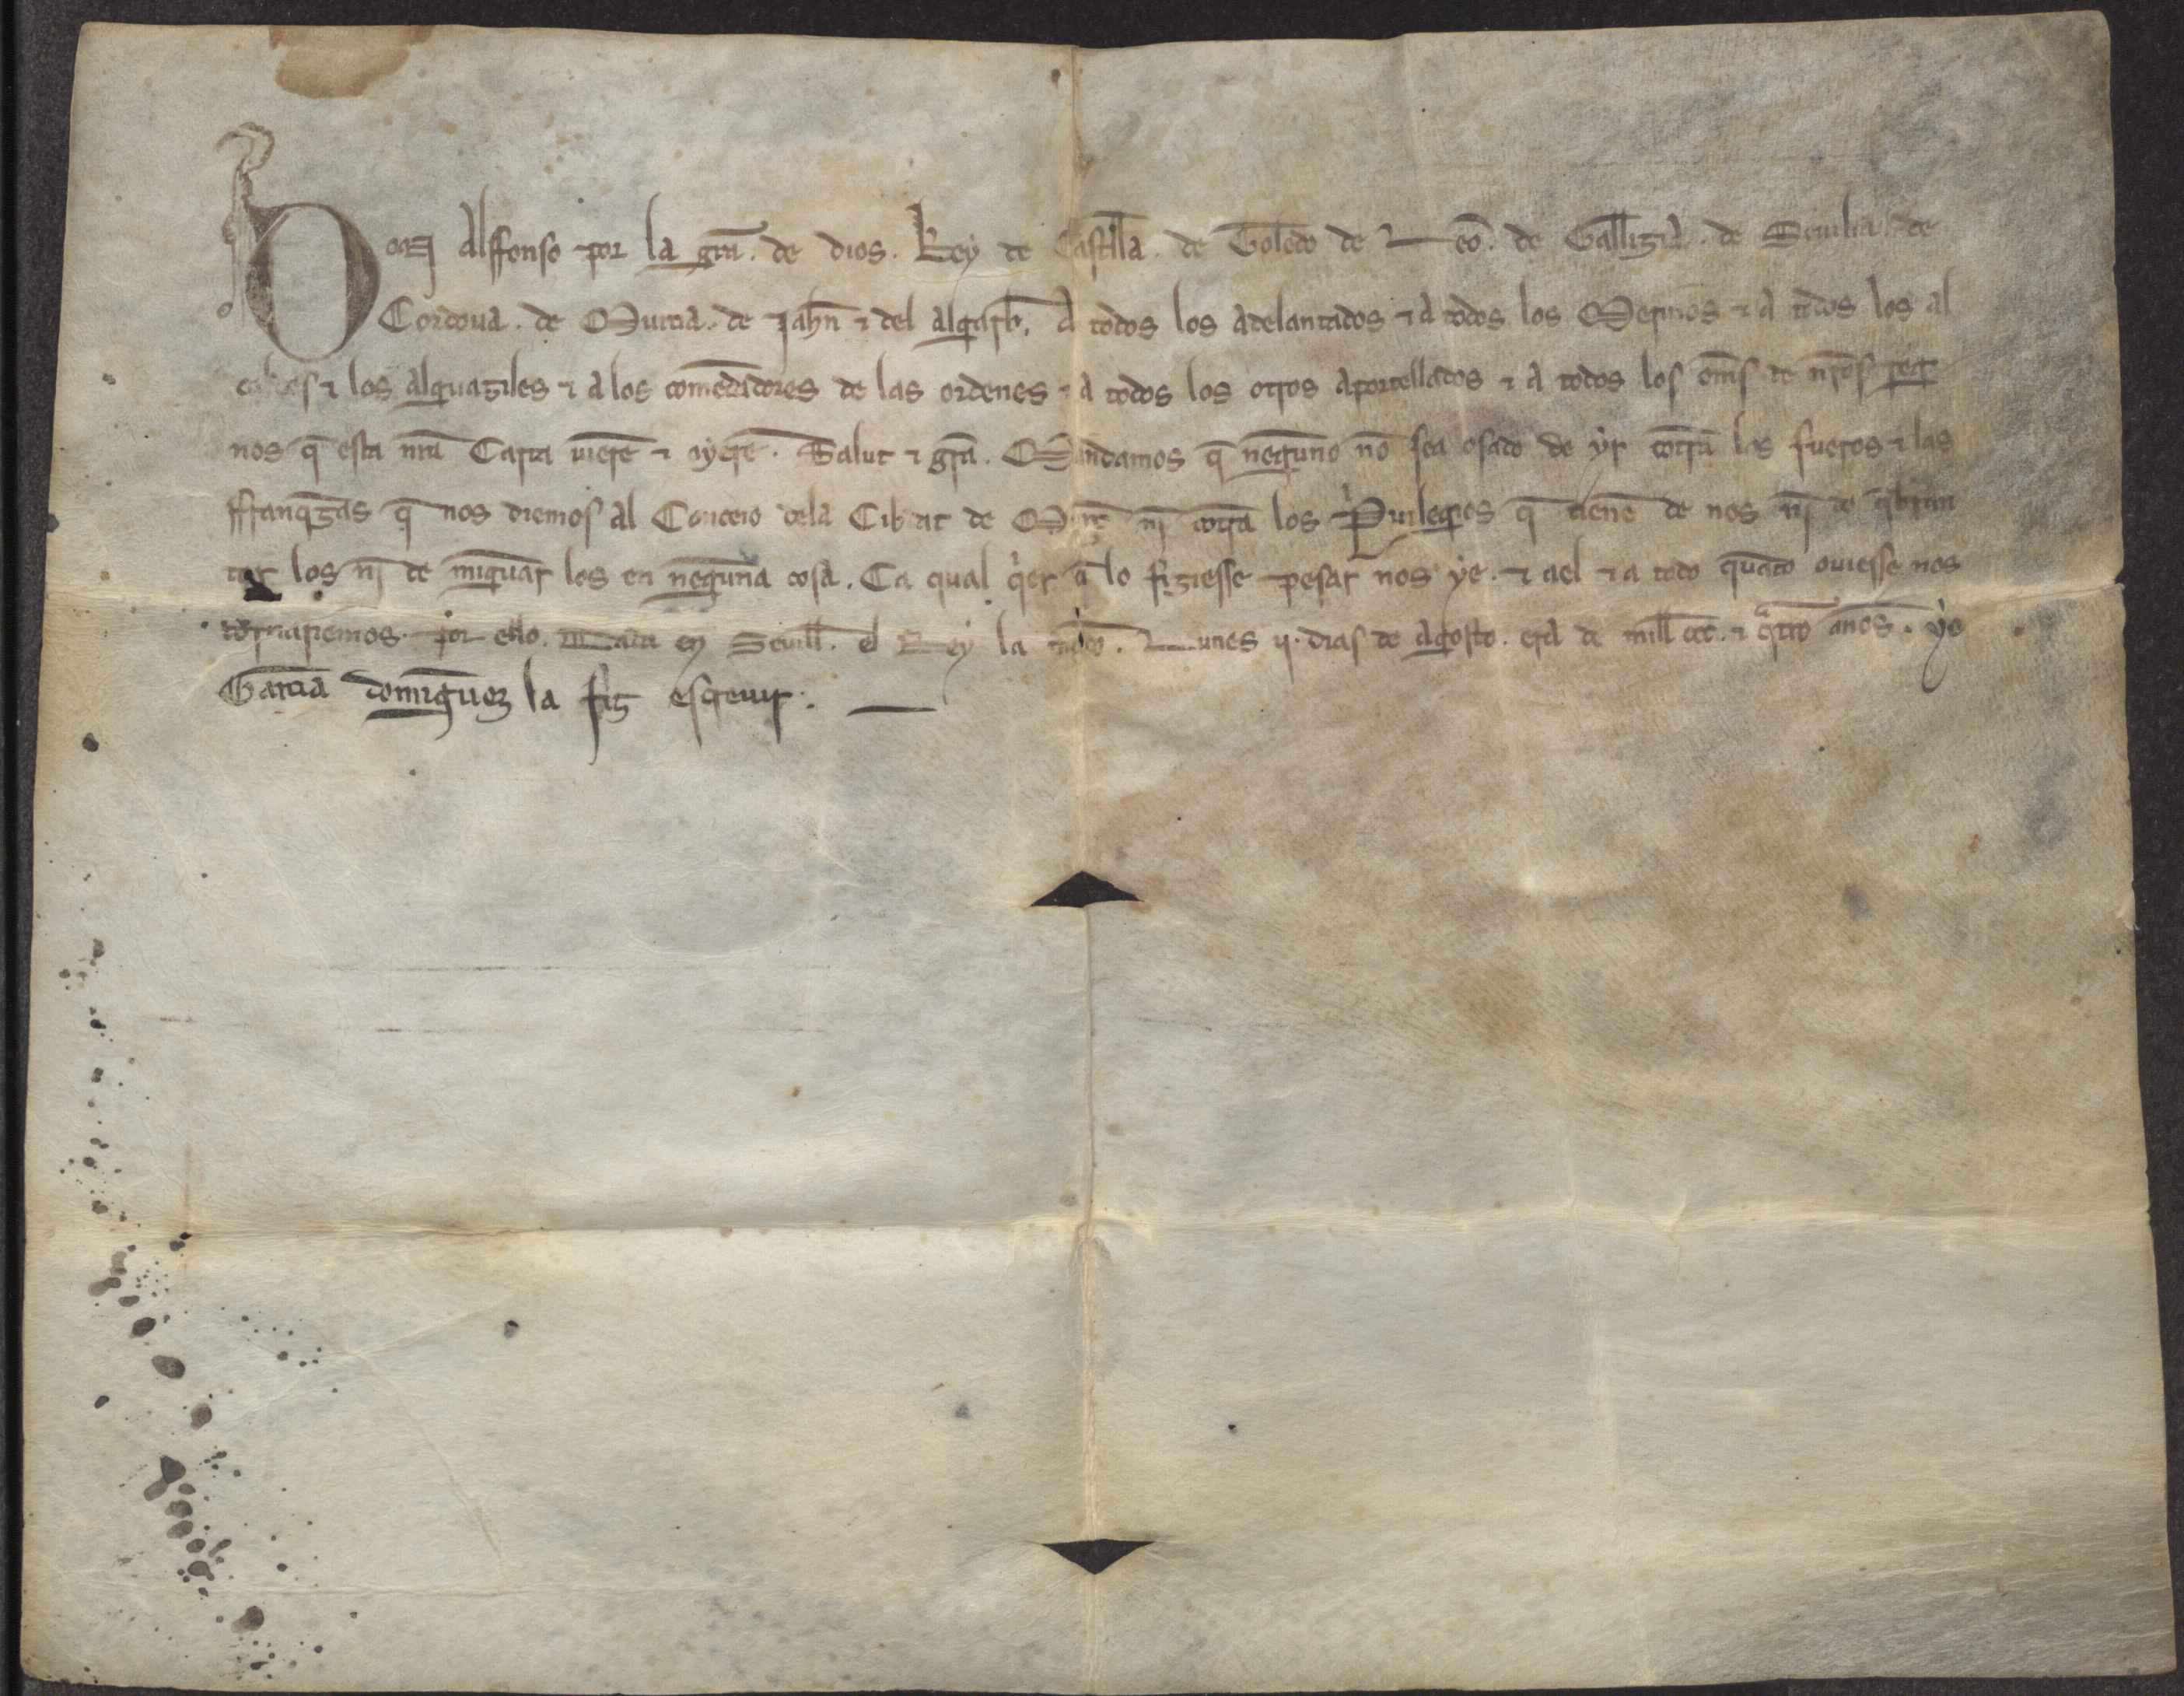 Don Alffonso por la gr̃a. de dios. Rey de Castiella. de Toledo de Leõ. de Gallizia. de Seuilla. de
Cordoua. de Murcia. de Jahñ ⁊ del algarb̃. A todos los adelantados ⁊ a todos los Merinos ⁊ a todos los al
caldes ⁊ los alguaziles ⁊ a los comẽdadores de las ordenes ⁊ a todos los otros aportellados ⁊ a todos los om̃s de nr̃os reg
nos q̃ esta nr̃a Carta uierẽ ⁊ oyerẽ. Salut ⁊ gr̃a. Mandamos q̃ neguno nõ sea osado de yr cõtra los fueros ⁊ las
ffranq̃zas q̃ nos diemos al Conceio dela Cibdat de Murc̃ nĩ cotra los Preuilegios q̃ tienẽ de nos nĩ de q̃bran
tar los nĩ de mĩguar los en neguna cosa. Ca qual q̉er q̃ lo fiziesse pesar nos ye. ⁊ ael ⁊ a todo quãto ouiesse nos
tornariemos por ello. Data en Seuill̃. el Rey la mãdo. Lunes ij. dias de Agosto. era de mill ccc. ⁊ q̃tro anos. yo
Garcia domĩguez la fiz escreuir.